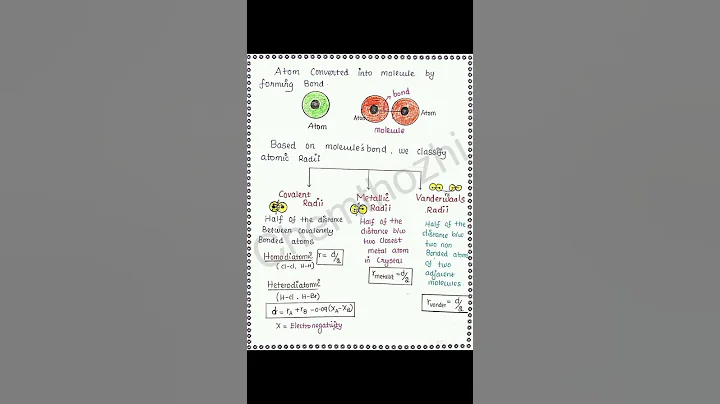 Atom Converted into molecule by
forming Bond.
bond
Atom
Atom
Atom
molecule
Based on molecule's bond, we classify
atomic Radii
Covalent
Radii
Half of the distance
Between covalently
Bonded atoms
Homodiatomic
(Cl-Cl, H-H)
r = d/2
Heterodiatomic
(H-Cl, H-Br)
d = rA + rB - 0.09(XA - XB)
X = Electronegativity
Metallic
Radii
Half of the
distance b/w
two closest
metal atom
in Crystal
rmetallic = d/2
Vanderwaals
Radii
Half of the
distance b/w
two non
Bonded atoms
of two
adjacent
molecules
rvander = d/2
Chemthozhi